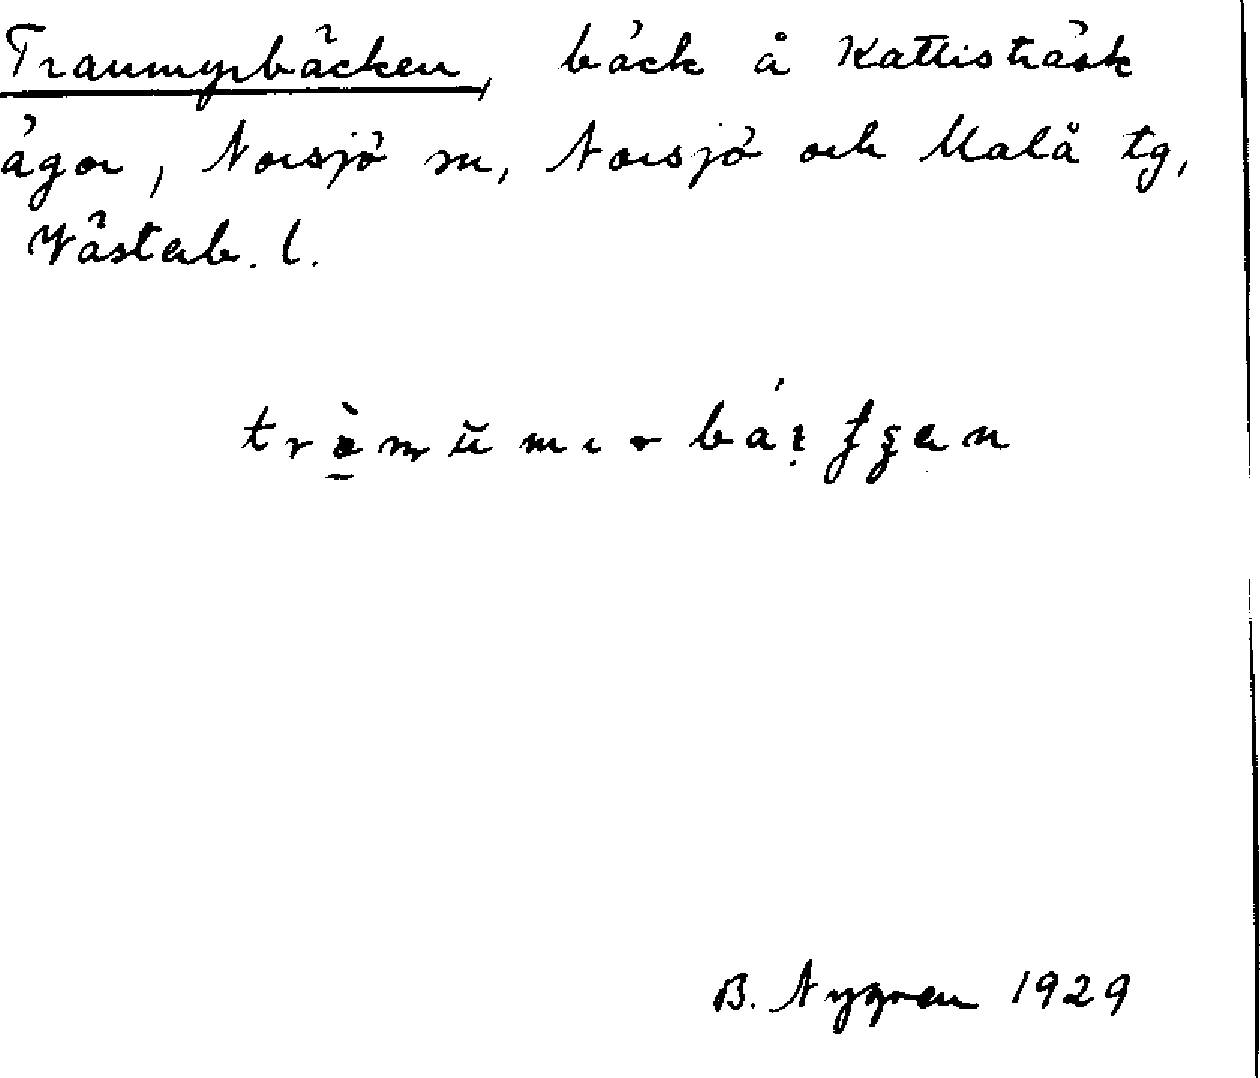 Tranmyrbäcken, bäck å Kattisträsk
ägor, Norsjö sn, Norsjö och Malå tg,
Västerb. l.
B. Nygren 1929